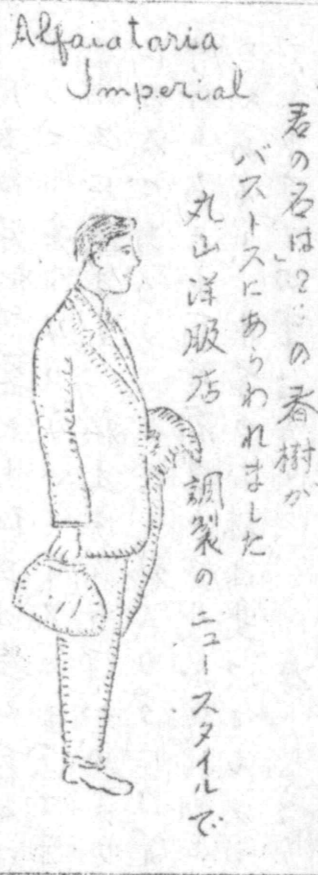 Alfaiataria
Imperial
君の名は?」の春樹が
バストスにあらわれました
丸山洋服店 調製のニュースタイルで